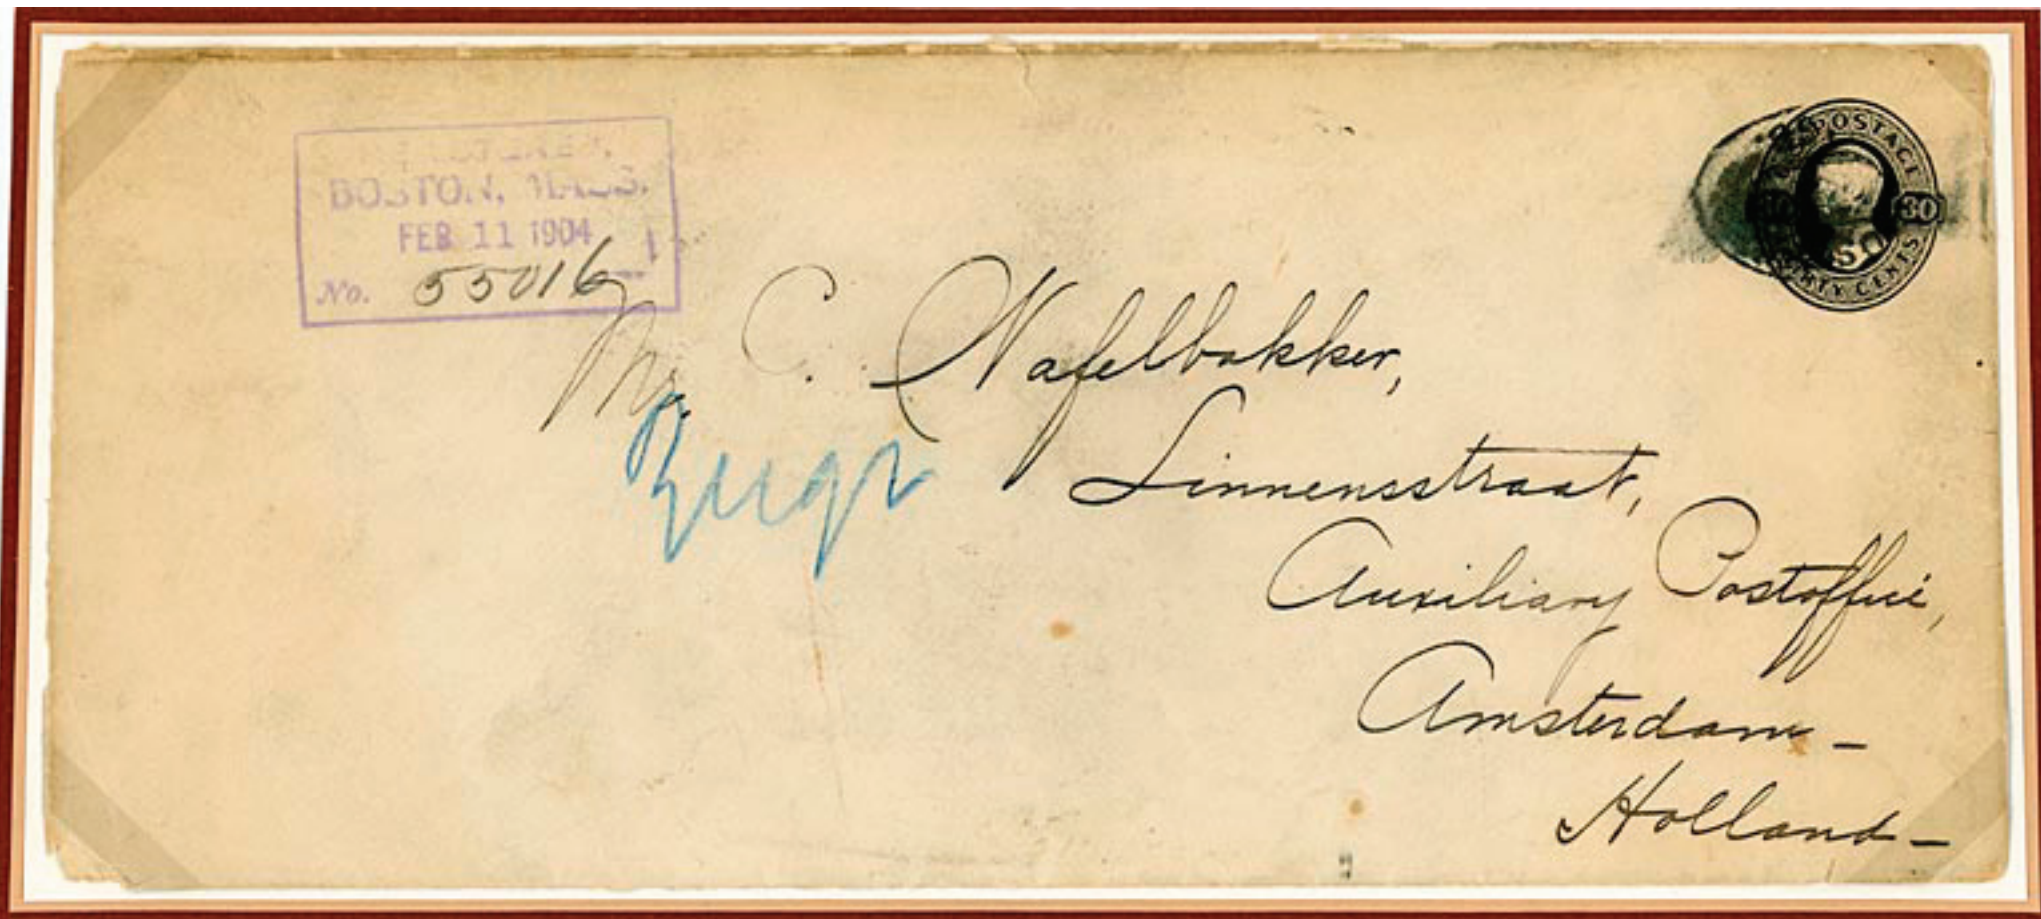 REGISTERED,
BOSTON, MASS.
FEB 11 1904
No. 55016
POSTAGE
30
THIRTY CENTS
Mr. C. Nafelbakker,
Linnensstraat,
Auxiliary Postoffice,
Amsterdam -
Holland -